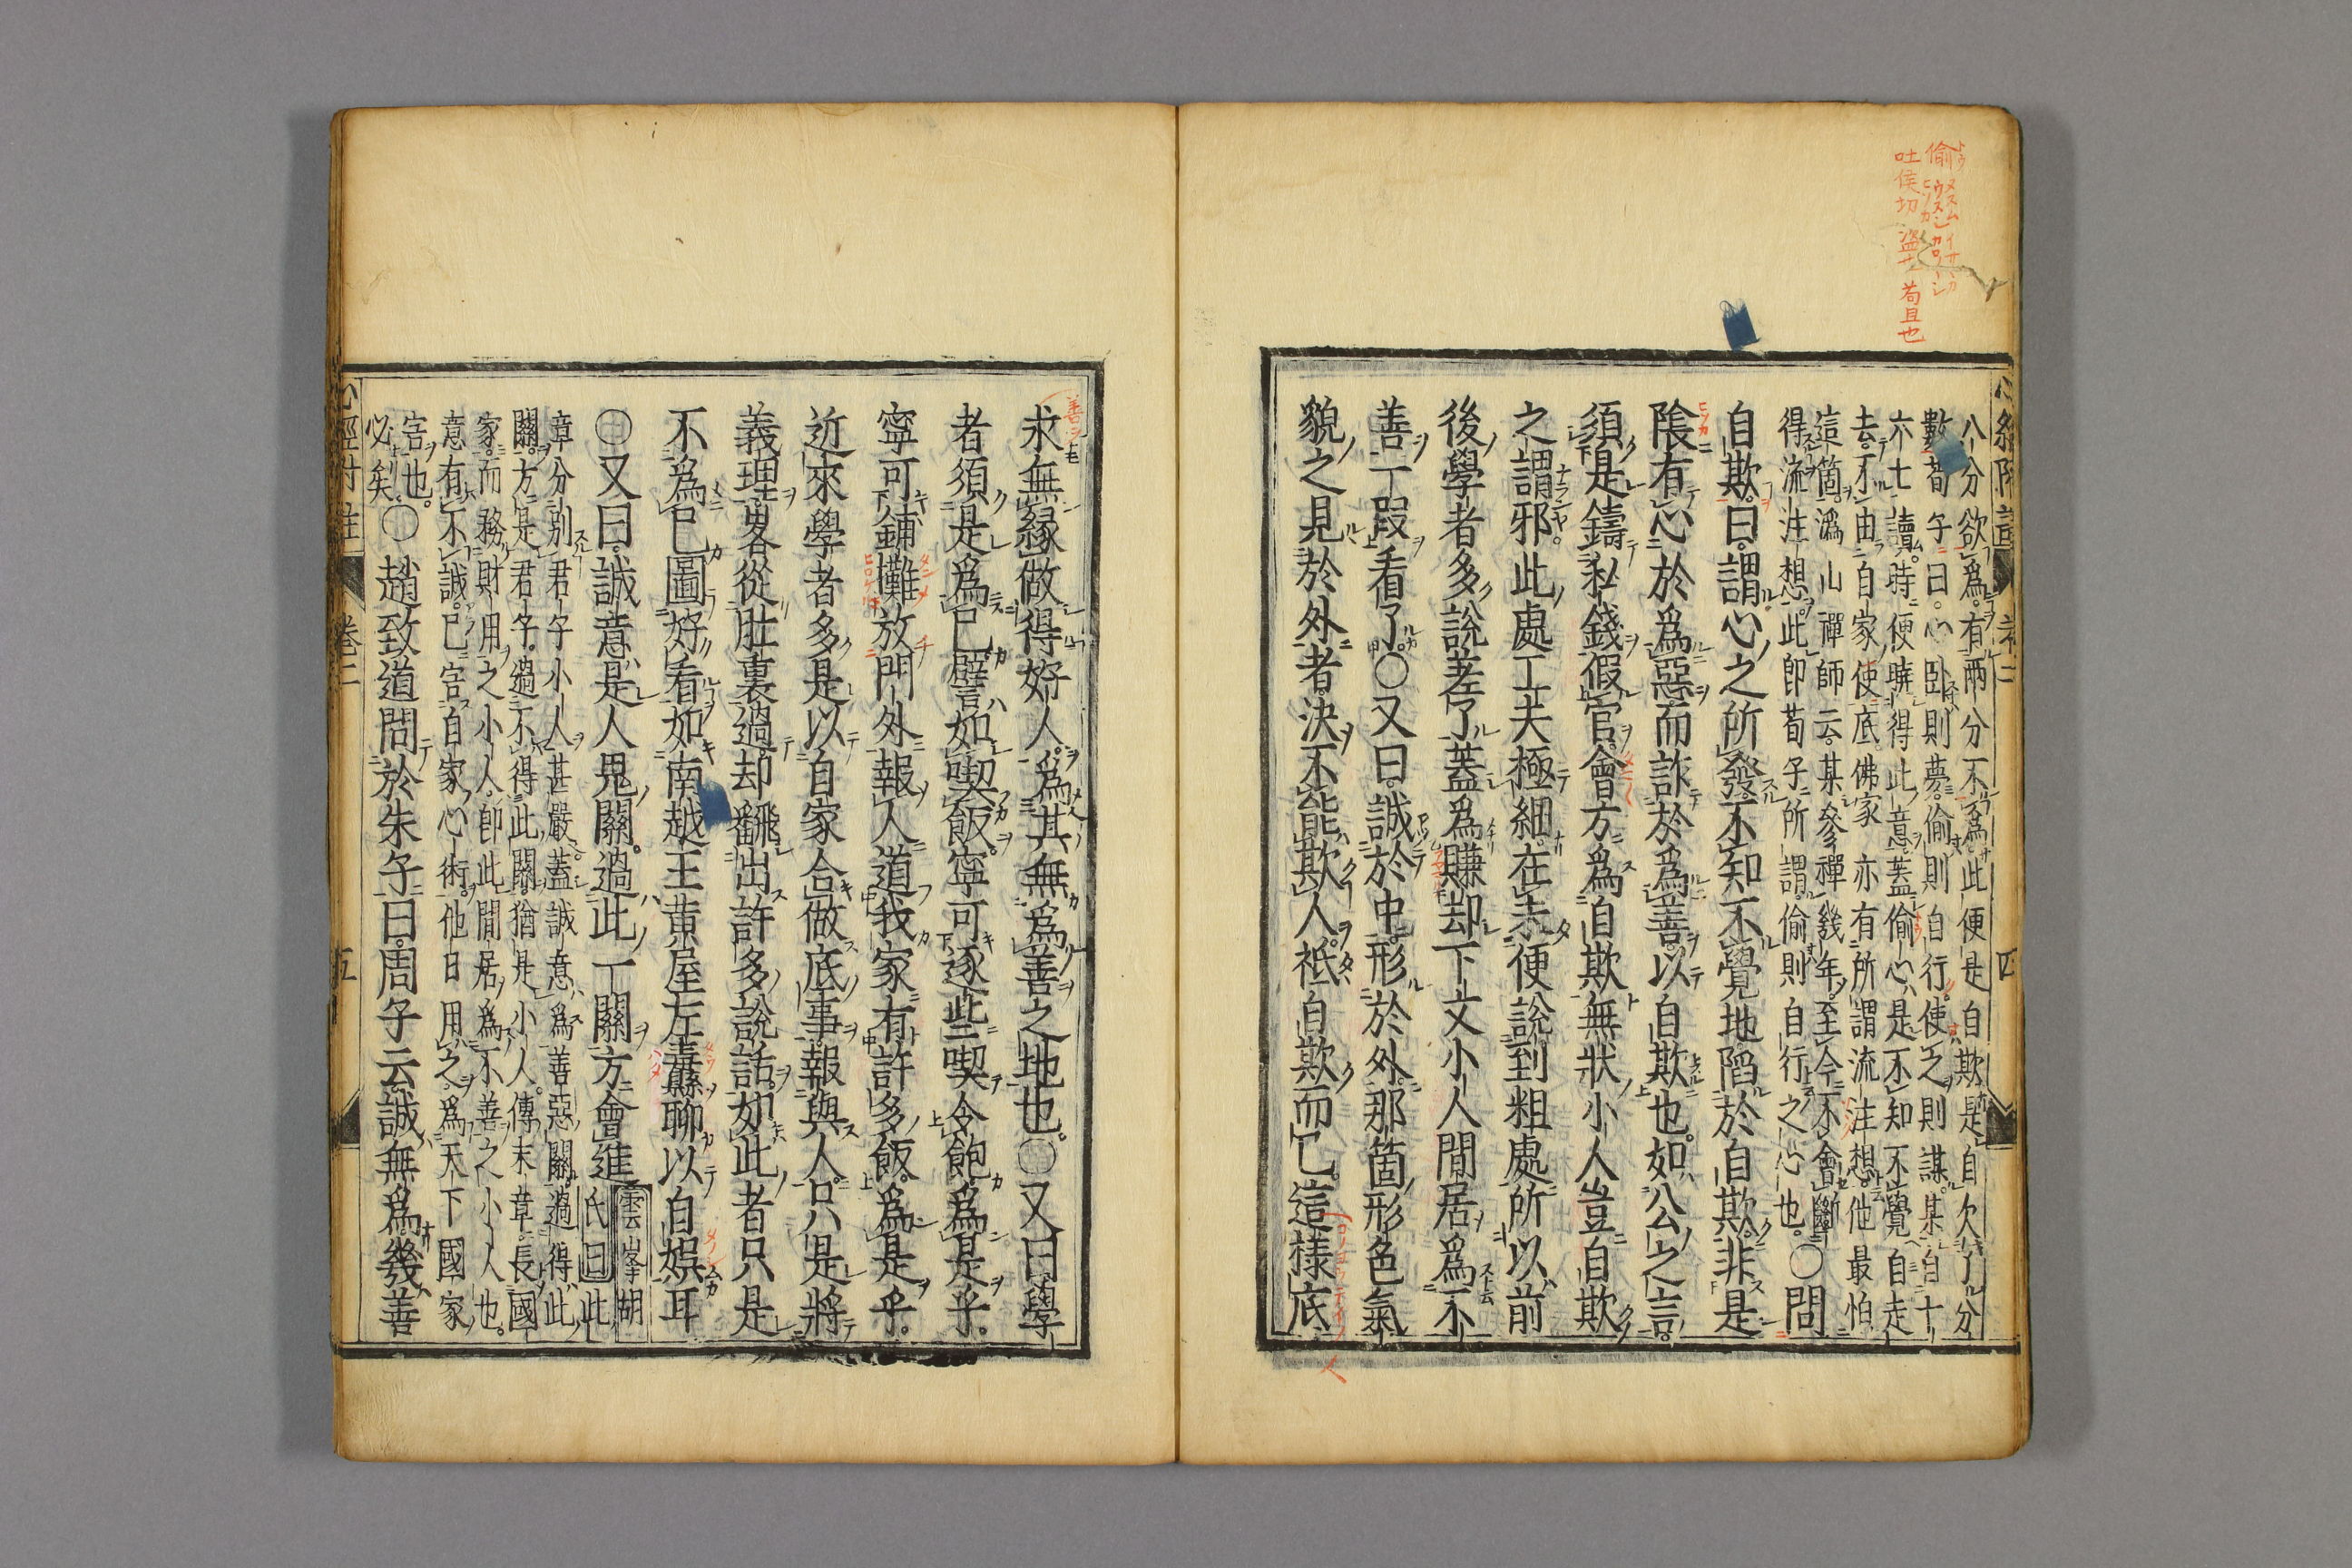 偷
吐侯切盗也苟且也
八分欲爲有兩分不爲此便是自欺是自欠了分
數荀子曰心卧則夢偷則自行使之則謀某自十
六七讀時便曉得此意蓋偷心是不知不覺自走
去不由自家使底佛家亦有所謂流注想他最怕
這箇潙山禪師云某參禪幾年至今不會斷
得流注想此卽荀子所謂偷則自行之心也〇問
自欺曰謂心之所發不知不覺地陷於自欺非是
陰有心於爲惡而詐於爲善以自欺也如公之言
須是鑄私錢假官會方爲自欺無狀小人豈自欺
之謂邪此處工夫極細在未便說到粗處所以前
後學者多說差了蓋爲賺却下文小人閒居爲不
善一段看了〇又曰誠於中形於外那箇形色氣
貌之見於外者決不能欺人祇自欺而已這樣底
永無緣做得好人爲其無爲善之地也〇又曰學
者須是爲己譬如喫飯寧可逐些喫令飽爲是乎
寧可鋪攤放門外報人道我家有許多飯爲是乎
近來學者多是以自家合做底事報與人只是將
義理畧從肚裏過却翻出許多說話如此者只是
不爲己圖好看如南越王黃屋左纛聊以自娛耳
〇又曰誠意是人鬼關過此一關方會進
雲峯胡
氏曰此
章分別君子小人甚嚴蓋誠意爲善惡關過得此
關方是君子過不得此關猶是小人傳末章長國
家而務財用之小人卽此閒居爲不善之小人也
意有不誠已害自家心術他日用之爲天下國家
害也
必矣〇趙致道問於朱子曰周子云誠無爲幾善
心經附註
卷二
五